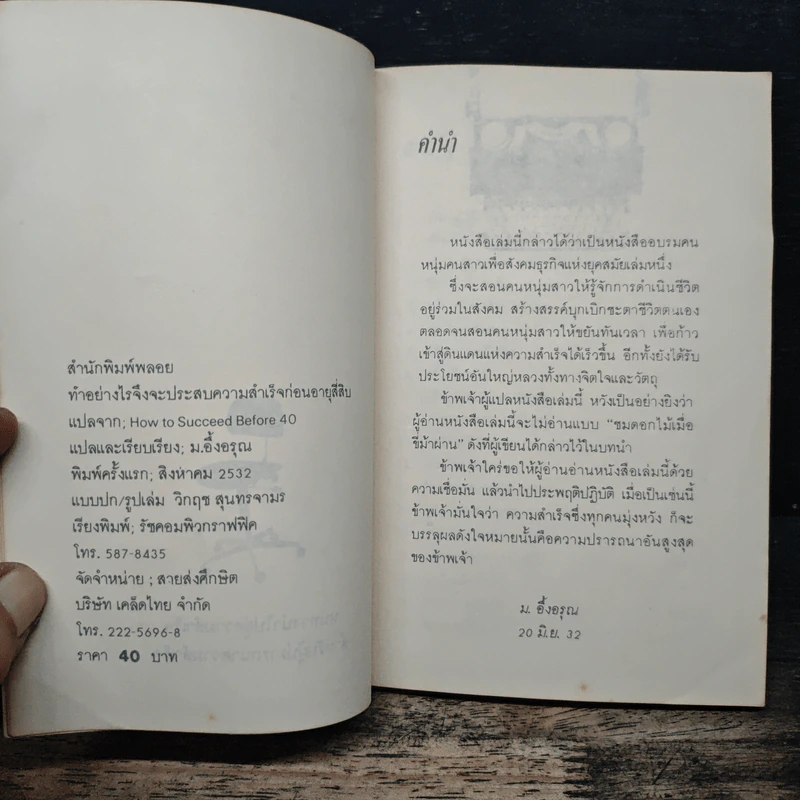 สำนักพิมพ์พลอย
ทำอย่างไรจึงจะประสบความสำเร็จก่อนอายุสี่สิบ
แปลจาก; How to Succeed Before 40
แปลและเรียบเรียง; ม.อึ้งอรุณ
พิมพ์ครั้งแรก; สิงหาคม 2532
แบบปก/รูปเล่ม วิกฤช สุนทรจามร
เรียงพิมพ์; รัชคอมพิวกราฟฟิค
โทร. 587-8435
จัดจำหน่าย ; สายส่งศึกษิต
บริษัท เคล็ดไทย จำกัด
โทร. 222-5696-8
ราคา 40 บาท
คำนำ
หนังสือเล่มนี้กล่าวได้ว่าเป็นหนังสืออบรมคน
หนุ่มคนสาวเพื่อสังคมธุรกิจแห่งยุคสมัยเล่มหนึ่ง
ซึ่งจะสอนคนหนุ่มสาวให้รู้จักการดำเนินชีวิต
อยู่ร่วมในสังคม สร้างสรรค์บุกเบิกชะตาชีวิตตนเอง
ตลอดจนสอนคนหนุ่มสาวให้ขยันทันเวลา เพื่อก้าว
เข้าสู่ดินแดนแห่งความสำเร็จได้เร็วขึ้น อีกทั้งยังได้รับ
ประโยชน์อันใหญ่หลวงทั้งทางจิตใจและวัตถุ
ข้าพเจ้าผู้แปลหนังสือเล่มนี้ หวังเป็นอย่างยิ่งว่า
ผู้อ่านหนังสือเล่มนี้จะไม่อ่านแบบ "ชมดอกไม้เมื่อ
ขี่ม้าผ่าน" ดังที่ผู้เขียนได้กล่าวไว้ในบทนำ
ข้าพเจ้าใคร่ขอให้ผู้อ่านอ่านหนังสือเล่มนี้ด้วย
ความเชื่อมั่น แล้วนำไปประพฤติปฏิบัติ เมื่อเป็นเช่นนี้
ข้าพเจ้ามั่นใจว่า ความสำเร็จซึ่งทุกคนมุ่งหวัง ก็จะ
บรรลุผลดังใจหมายนั้นคือความปรารถนาอันสูงสุด
ของข้าพเจ้า
ม. อึ้งอรุณ
20 มิ.ย. 32